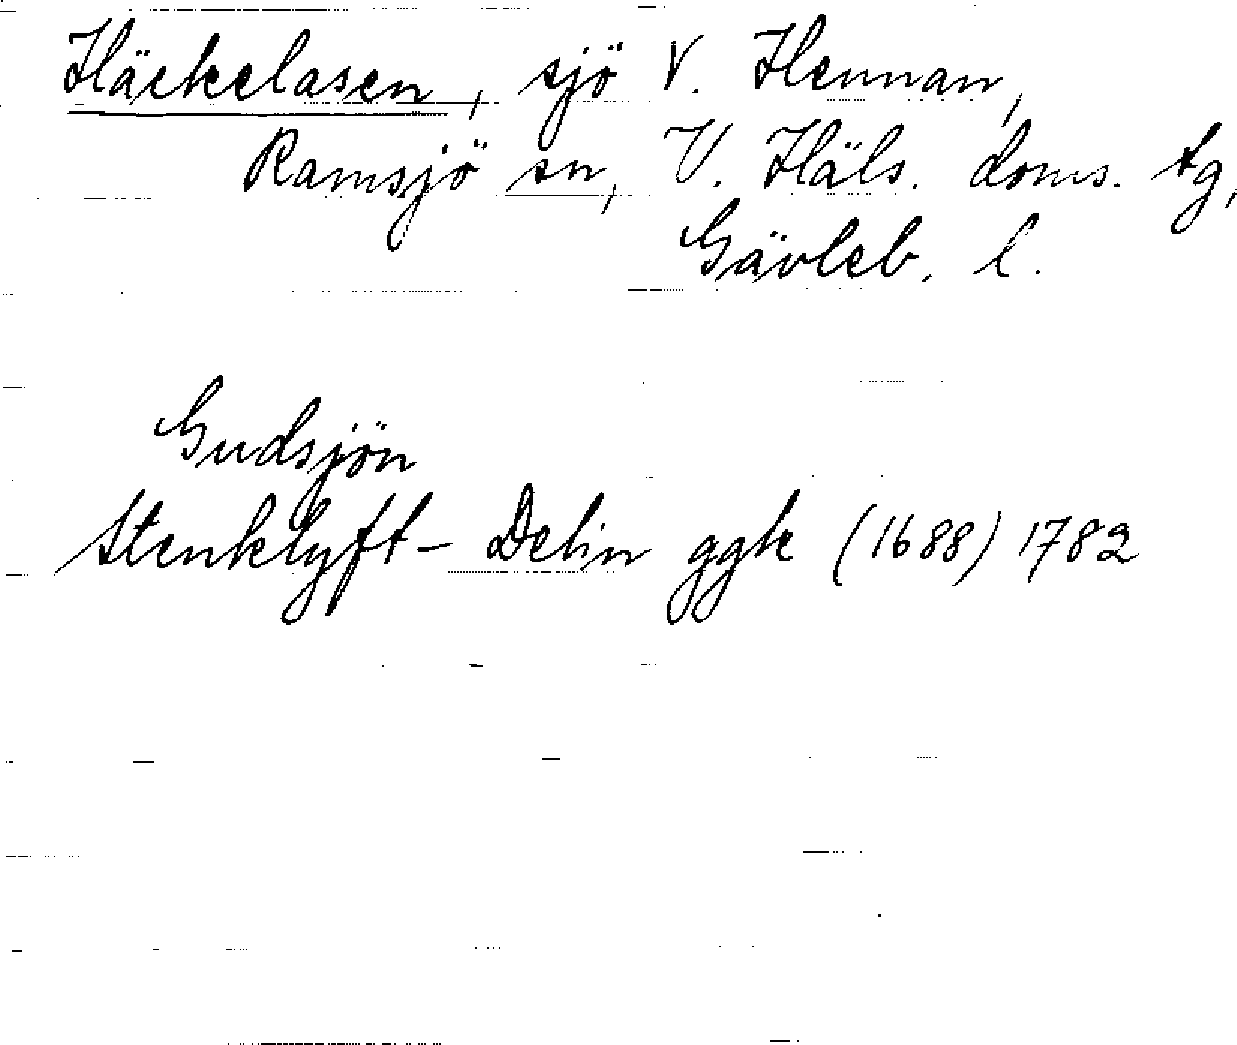 Häckelasen, sjö V. Hennan,
Ramsjö sn, V. Häls. doms. tg,
Gävleb. l.
Gudsjön
Stenklyft - Delin ggk (1688) 1782